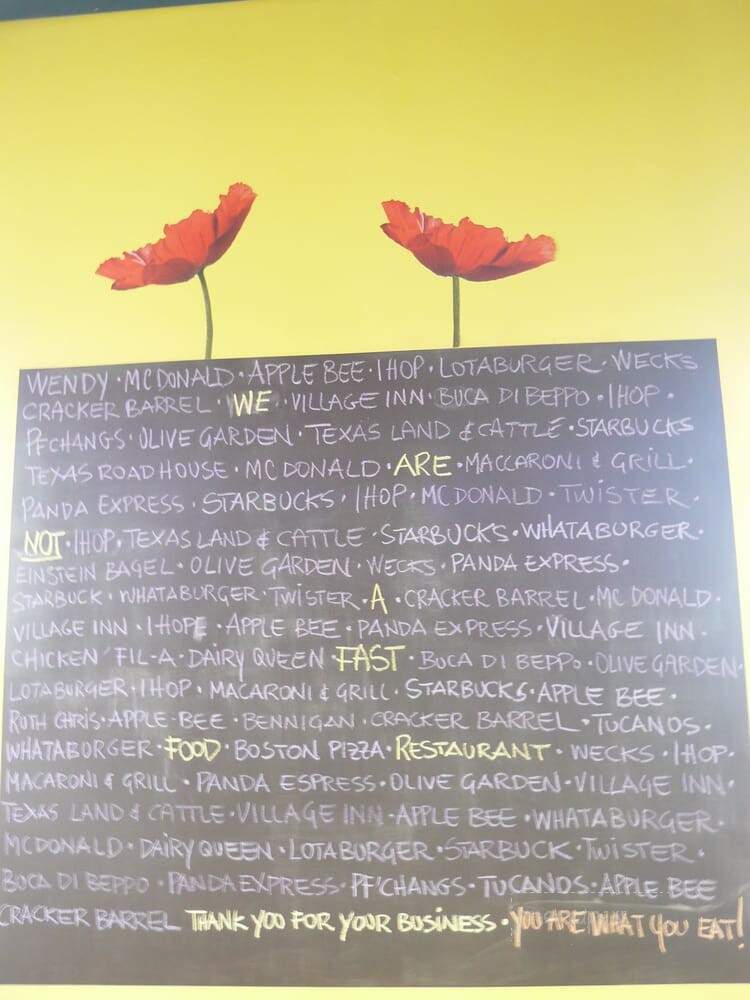 WENDY · MCDONALD · APPLE BEE · IHOP · LOTABURGER · WECKS
CRACKER BARREL · WE · VILLAGE INN · BUCA DI BEPPO · IHOP ·
PFCHANGS · OLIVE GARDEN · TEXAS LAND & CATTLE · STARBUCKS
TEXAS ROADHOUSE · MC DONALD · ARE · MACCARONI & GRILL ·
PANDA EXPRESS · STARBUCKS · IHOP · MC DONALD · TWISTER ·
NOT · IHOP · TEXAS LAND & CATTLE · STARBUCKS · WHATABURGER ·
EINSTEIN BAGEL · OLIVE GARDEN · WECKS · PANDA EXPRESS ·
STARBUCK · WHATABURGER · TWISTER · A · CRACKER BARREL · MC DONALD ·
VILLAGE INN · IHOPE · APPLE BEE · PANDA EXPRESS · VILLAGE INN ·
CHICKEN' FIL-A · DAIRY QUEEN · FAST · BUCA DI BEPPO · OLIVE GARDEN ·
LOTABURGER · IHOP · MACARONI & GRILL · STARBUCKS · APPLE BEE ·
RUTH CHRIS · APPLE BEE · BENNIGAN · CRACKER BARREL · TUCANOS ·
WHATABURGER · FOOD · BOSTON PIZZA · RESTAURANT · WECKS · IHOP ·
MACARONI & GRILL · PANDA ESPRESS · OLIVE GARDEN · VILLAGE INN ·
TEXAS LAND & CATTLE · VILLAGE INN · APPLE BEE · WHATABURGER ·
MCDONALD · DAIRY QUEEN · LOTABURGER · STARBUCK · TWISTER ·
BUCA DI BEPPO · PANDA EXPRESS · PF'CHANGS · TUCANOS · APPLE BEE
CRACKER BARREL THANK YOU FOR YOUR BUSINESS · YOU ARE WHAT YOU EAT!